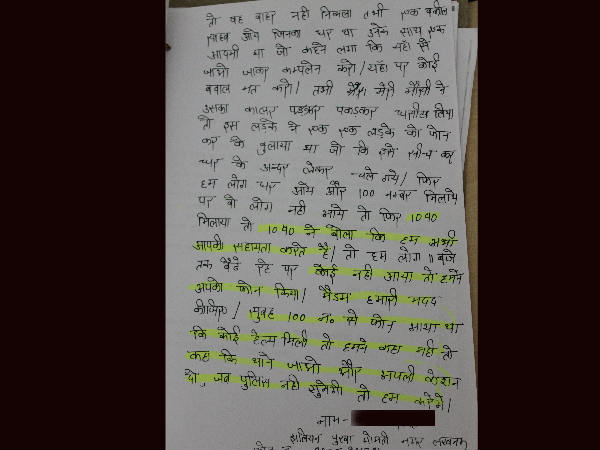 तो वह बाहर नही निकला तभी एक वकील
साहब आये जिनका घर था उनके साथ एक
आदमी था जो कहने लगा कि यहाँ से
जाओ जाकर कम्पलेन करो/यहाँ पर कोई
बवाल मत करो/ तभी मेरी मौसी ने
उसका कालर पकड़कर घसीट लिया
तो इस लड़के ने एक एक लड़के को फोन
कर के बुलाया था जो कि इसे खीच कर
घर के अन्दर लेकर चले गये/ फिर
हम लोग घर आये और 100 नम्बर मिलाये
पर वो लोग नही आये तो फिर 1090
मिलाया तो 1090 ने बोला कि हम अभी
आपकी सहायता करते है/ तो हम लोग 11 बजे
तक बैठे रहे पर कोई नही आया तो हमने
आपको फोन किया/ मैडम हमारी मदद
कीजिए/ सुबह 100 न० से फोन आया था
कि कोई हेल्प मिली तो हमने कहा नही तो
कहा कि थाने जाओ और अपली केशन
दो, जब पुलिस नही सुनेगी तो हम करेगें/
नाम-
पुरवा गोमती नगर लखनऊ